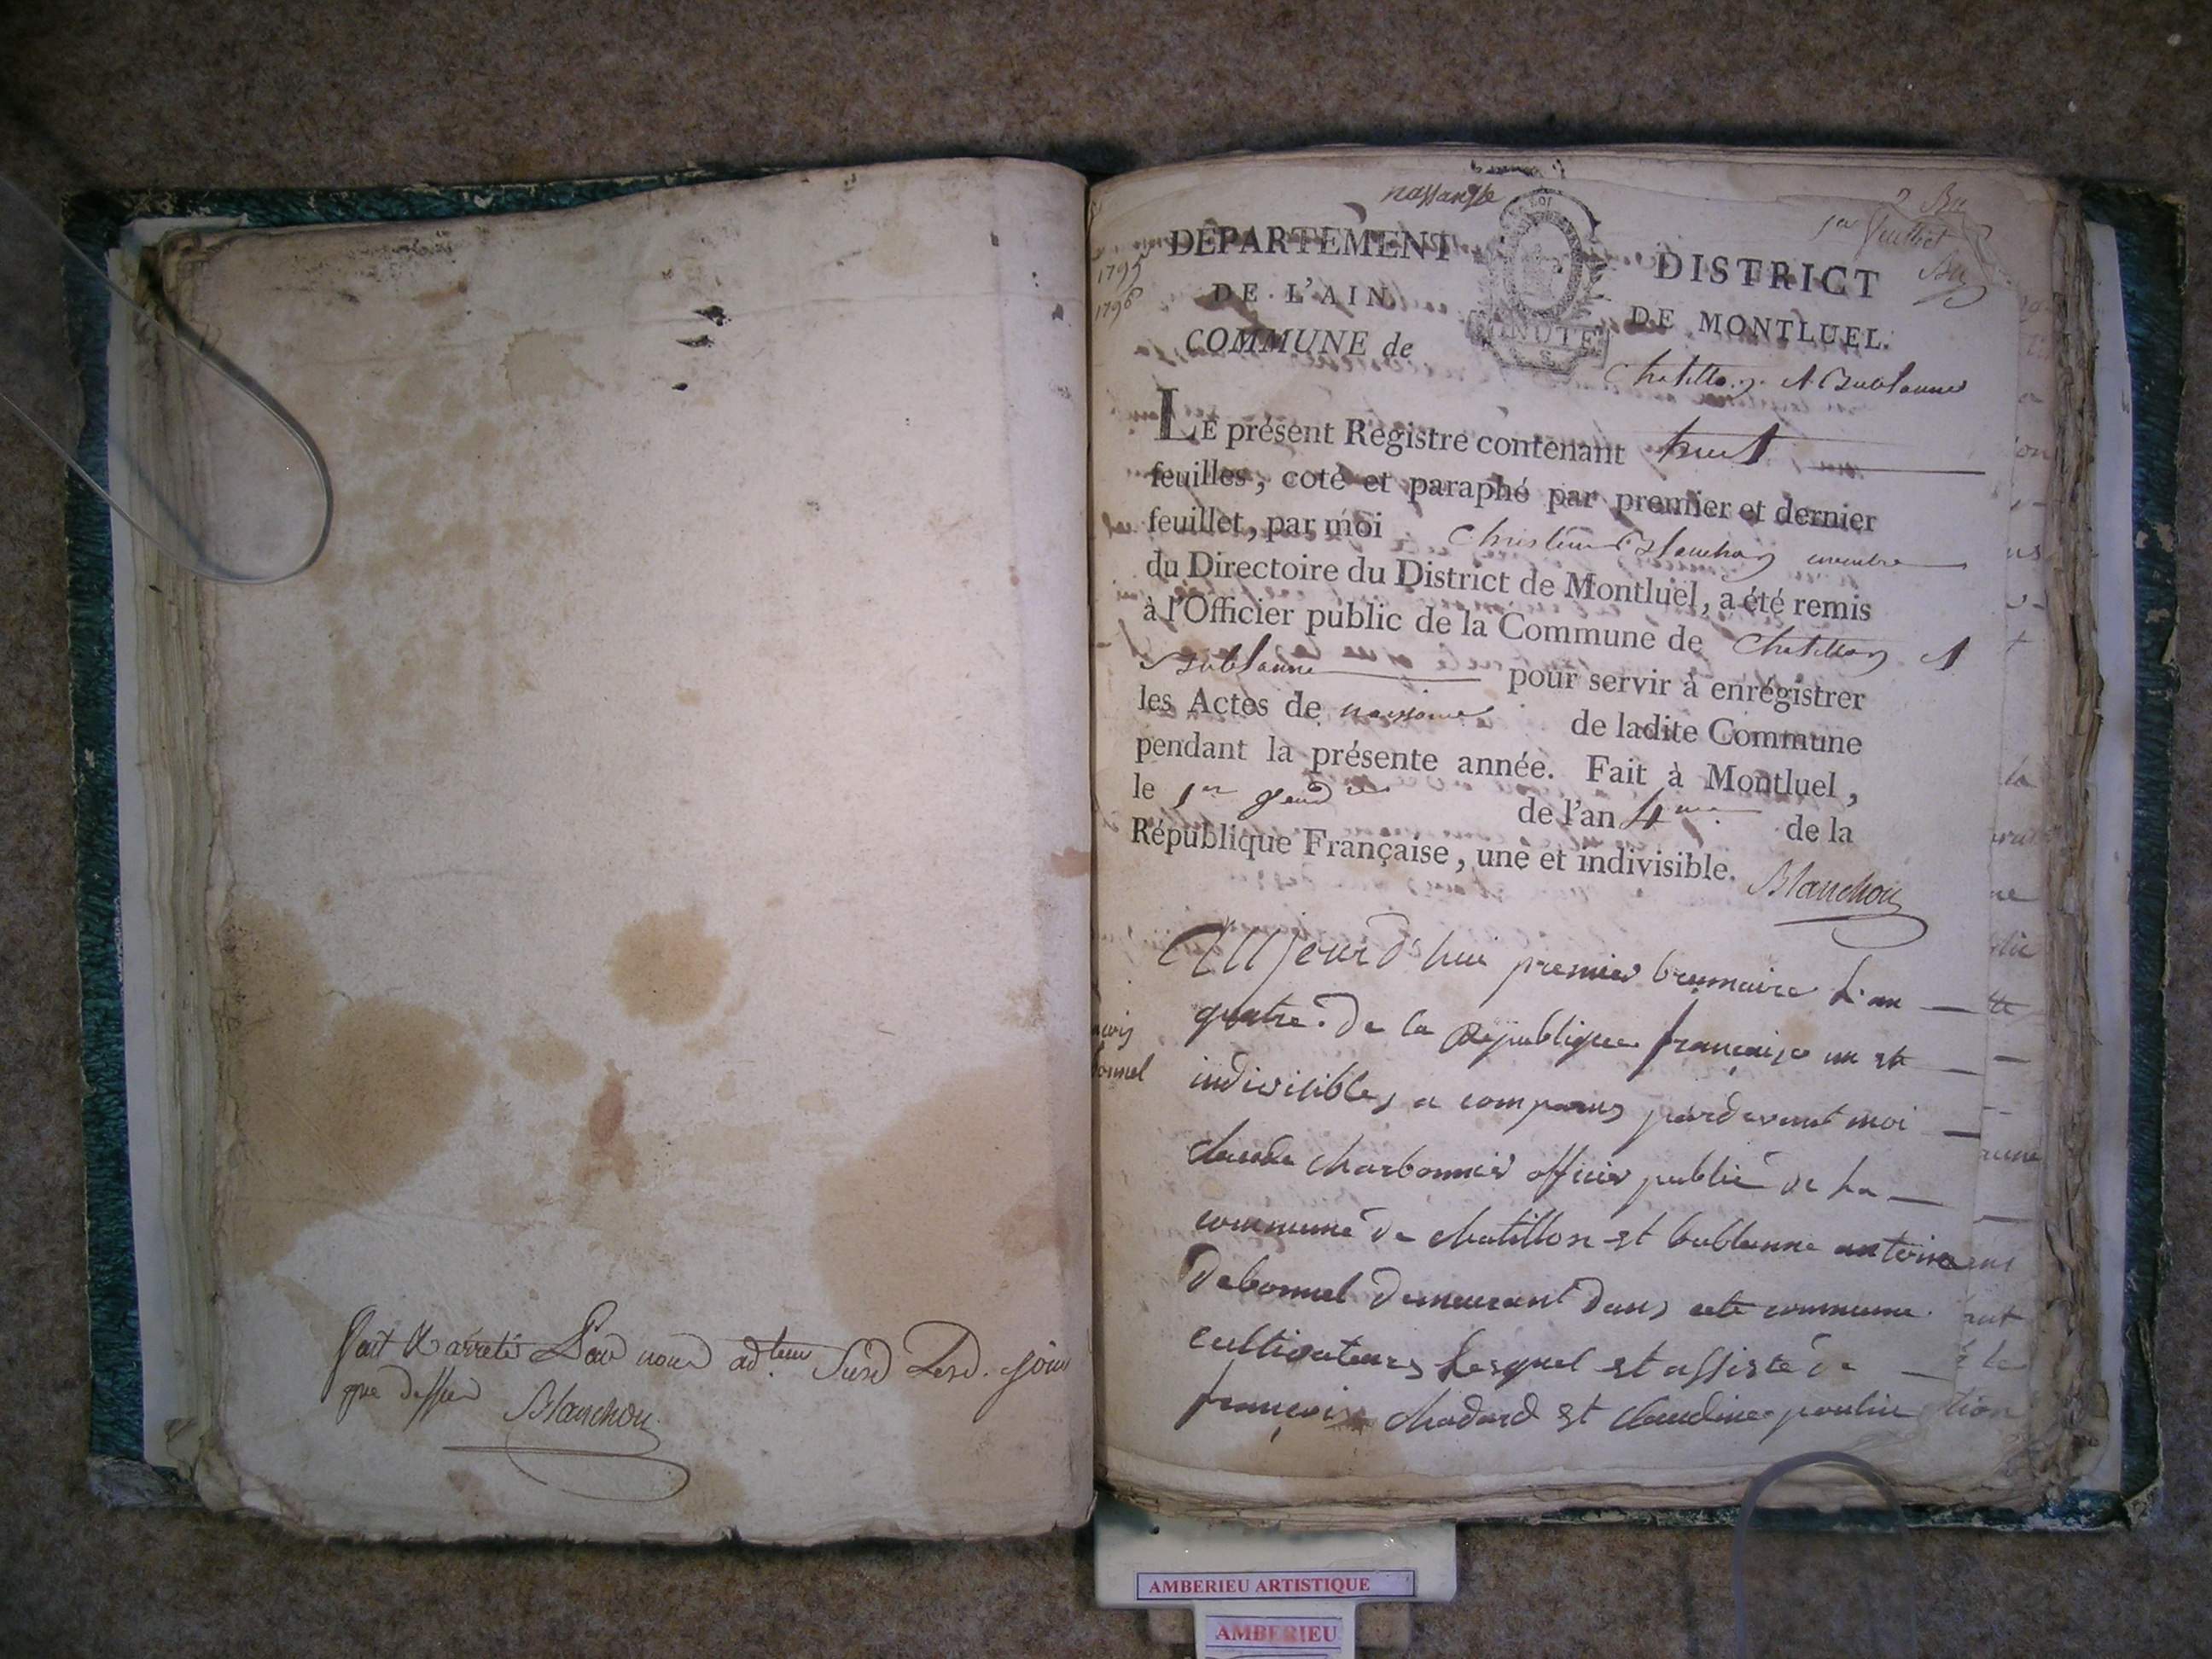 fait & arreté par nous adteur susd Lesd. jour
que dessus Blanchon
nessance
1795
1796
DÉPARTEMENT
DE L'AIN
COMMUNE de
MINUTE
DISTRICT
DE MONTLUEL.
1er feuillet
Chatillon et Bublanne
LE présent Registre contenant huit
feuilles, coté et paraphé par premier et dernier
feuillet, par moi Christin Blanchon membre
du Directoire du District de Montluel, a été remis
à l'Officier public de la Commune de Chatillon et
Bublanne pour servir à enrégistrer
les Actes de naissance de ladite Commune
pendant la présente année. Fait à Montluel,
le 1er de l'an 4me de la
République Française, une et indivisible.
Blanchon
Aujourd'hui premier brumaire l'an
quatre de la République française un et
indivisible, a comparus pardevant moi
claude charbonnier officier public de la
commune de chatillon et bublanne antoine
Debonnel demeurant dans cete commune
cultivateur lesquel et assisté de
françois chadard et claudine poulin
AMBERIEU ARTISTIQUE
AMBERIEU